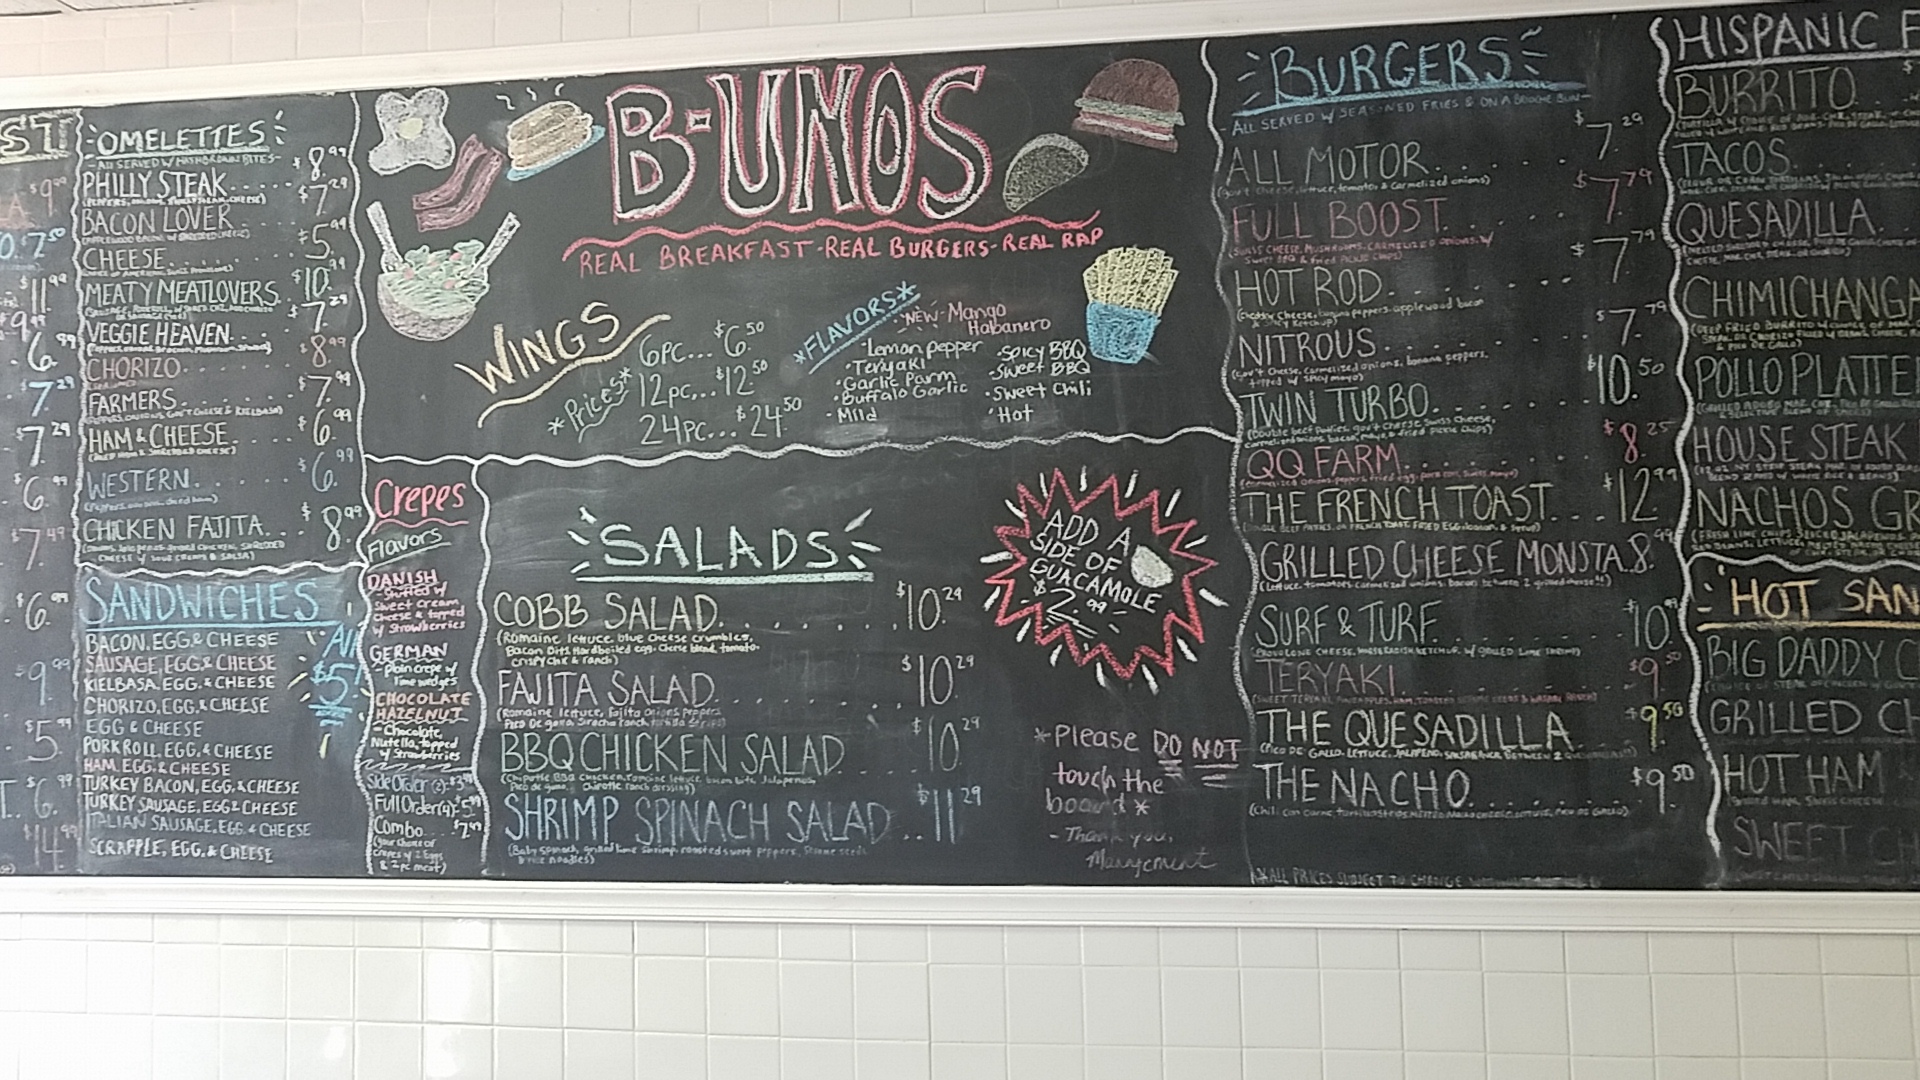 ST
$9.99
$7.50
$11.99
$9.99
6.99
7.29
$7.29
6.99
$7.49
$6.99
9.99
$5.99
$6.99
14.99
OMELETTES
-ALL SERVED W/ HASHBROWN BITES-
PHILLY STEAK.... $8.99
BACON LOVER.... $7.29
CHEESE........ $5.99
MEATY MEATLOVERS. $10.99
VEGGIE HEAVEN... $7.29
CHORIZO....... $8.99
FARMERS....... $7.99
HAM & CHEESE.... $6.99
WESTERN....... $6.99
CHICKEN FAJITA... $8.99
SANDWICHES
BACON, EGG & CHEESE
SAUSAGE, EGG, & CHEESE
KIELBASA, EGG, & CHEESE
CHORIZO, EGG, & CHEESE
EGG & CHEESE
PORKROLL, EGG, & CHEESE
HAM, EGG, & CHEESE
TURKEY BACON, EGG, & CHEESE
TURKEY SAUSAGE, EGG & CHEESE
ITALIAN SAUSAGE, EGG, & CHEESE
SCRAPPLE, EGG, & CHEESE
All
$5!
B-UNOS
REAL BREAKFAST-REAL BURGERS-REAL RAP
WINGS
*Prices*
6PC... $6.50
12PC... $12.50
24PC... $24.50
*FLAVORS*
·NEW-Mango
Habanero
·Lemon pepper
·Teriyaki
·Garlic Parm
·Buffalo Garlic
·Mild
·Spicy BBQ
·Sweet BBQ
·Sweet Chili
·Hot
Crepes
Flavors
DANISH
-Stuffed w/
Sweet Cream
Cheese & topped
w/ Strawberries
GERMAN
-Plain crepe w/
lime wedges
CHOCOLATE
HAZELNUT
-Chocolate,
Nutella, topped
w/ Strawberries
Side Order (2): $3.99
Full Order (4): $5.99
Combo... $7.99
(your choice of
Crepes w/ 2 Eggs
& 2pc meat)
SALADS
COBB SALAD....... $10.29
(Romaine lettuce, blue cheese crumbles,
Bacon Bits, Hardboiled egg, cheese blend, tomato,
crispy chk & ranch)
FAJITA SALAD....... $10.29
(Romaine lettuce, fajita onions, peppers
Pico De gallo, Siracha ranch, tortilla strips)
BBQ CHICKEN SALAD... $10.29
(Chipotle BBQ Chicken, romaine lettuce, bacon bits, Jalapenos,
Pico de gallo, Chipotle ranch dressing)
SHRIMP SPINACH SALAD.. $11.29
(Baby spinach, grilled lime shrimp, roasted sweet peppers, Sesame seeds
& rice noodles)
ADD A
SIDE OF
GUACAMOLE
$2.99
*Please DO NOT
touch the
board*
-Thank you,
Management
BURGERS
-ALL SERVED W/ SEASONED FRIES & ON A BRIOCHE BUN-
ALL MOTOR....... $7.29
(gov't cheese, lettuce, tomatos & Carmelized onions)
FULL BOOST....... $7.79
(SWISS CHEESE, MUSHROOMS, CARMELIZED ONIONS, W/
Sweet BBQ & fried PICKLE CHIPS)
HOT ROD....... $7.79
(cheddar Cheese, banana peppers, applewood bacon
& Spicy Ketchup)
NITROUS....... $7.79
(gov't Cheese, carmelized onions, banana peppers,
topped w/ spicy mayo)
TWIN TURBO....... $10.50
(Double beef Patties, gov't cheese, Swiss cheese,
carmelized onions, bacon, mayo & fried pickle chips)
QQ FARM....... $8.25
THE FRENCH TOAST... $12.99
GRILLED CHEESE MONSTA. 8.99
(Lettuce, tomatoes, carmelized onions, bacon between 2 grilled cheese!!)
SURF & TURF....... $10.99
TERYAKI....... $9.50
THE QUESADILLA.... $9.50
THE NACHO....... $9.50
*ALL PRICES SUBJECT TO CHANGE
HISPANIC F
BURRITO
TACOS
QUESADILLA
CHIMICHANGA
POLLO PLATTE
HOUSE STEAK
NACHOS GR
HOT SAN
BIG DADDY C
GRILLED CH
HOT HAM
SWEET CH